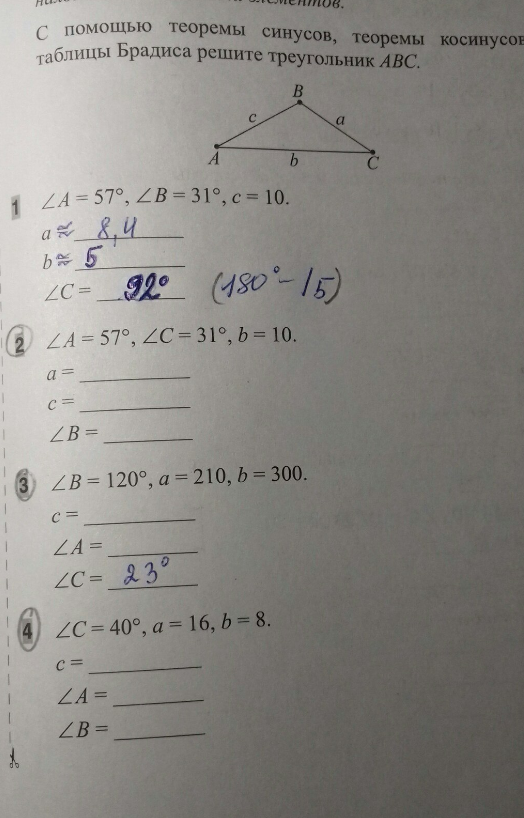 элементов.
С помощью теоремы синусов, теоремы косинусов
таблицы Брадиса решите треугольник ABC.
B
c a
A b C
1 ∠A = 57°, ∠B = 31°, c = 10.
a ≈ 8,4
b ≈ 5
∠C = 92° (180° –
2 ∠A = 57°, ∠C = 31°, b = 10.
a =
c =
∠B =
3 ∠B = 120°, a = 210, b = 300.
c =
∠A =
∠C = 23°
4 ∠C = 40°, a = 16, b = 8.
c =
∠A =
∠B =